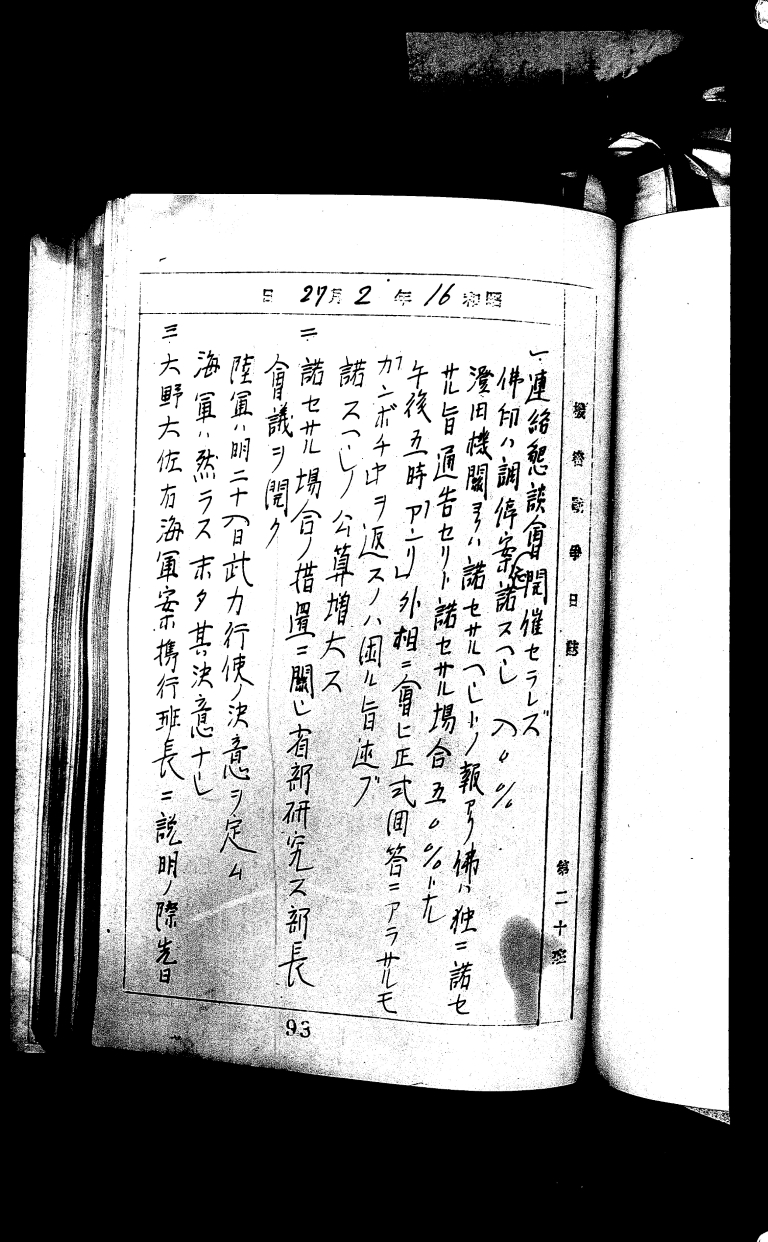 機密戦争日誌
第二十班
昭和16年2月27日
一、連絡懇談會開催セラレズ
佛印ハ調停案応諾スヘシ 八〇%
澄田機關ヨリハ諾セサルヘシトノ報アリ佛ハ独ニ諾セ
サル旨通告セリト諾セサル場合五〇%トナル
午後五時「アンリ」外相ニ會ヒ正式回答ニアラサルモ
カンボヂヤヲ返スノハ困ル旨述ブ
諾スヘシノ公算増大ス
二、諾セサル場合ノ措置ニ關シ省部研究ス部長
會議ヲ開ク
陸軍ハ明二十八日武力行使ノ決意ヲ定ム
海軍ハ然ラス未タ其決意ナシ
三、大野大佐右海軍案携行班長ニ説明ノ際昔日
93